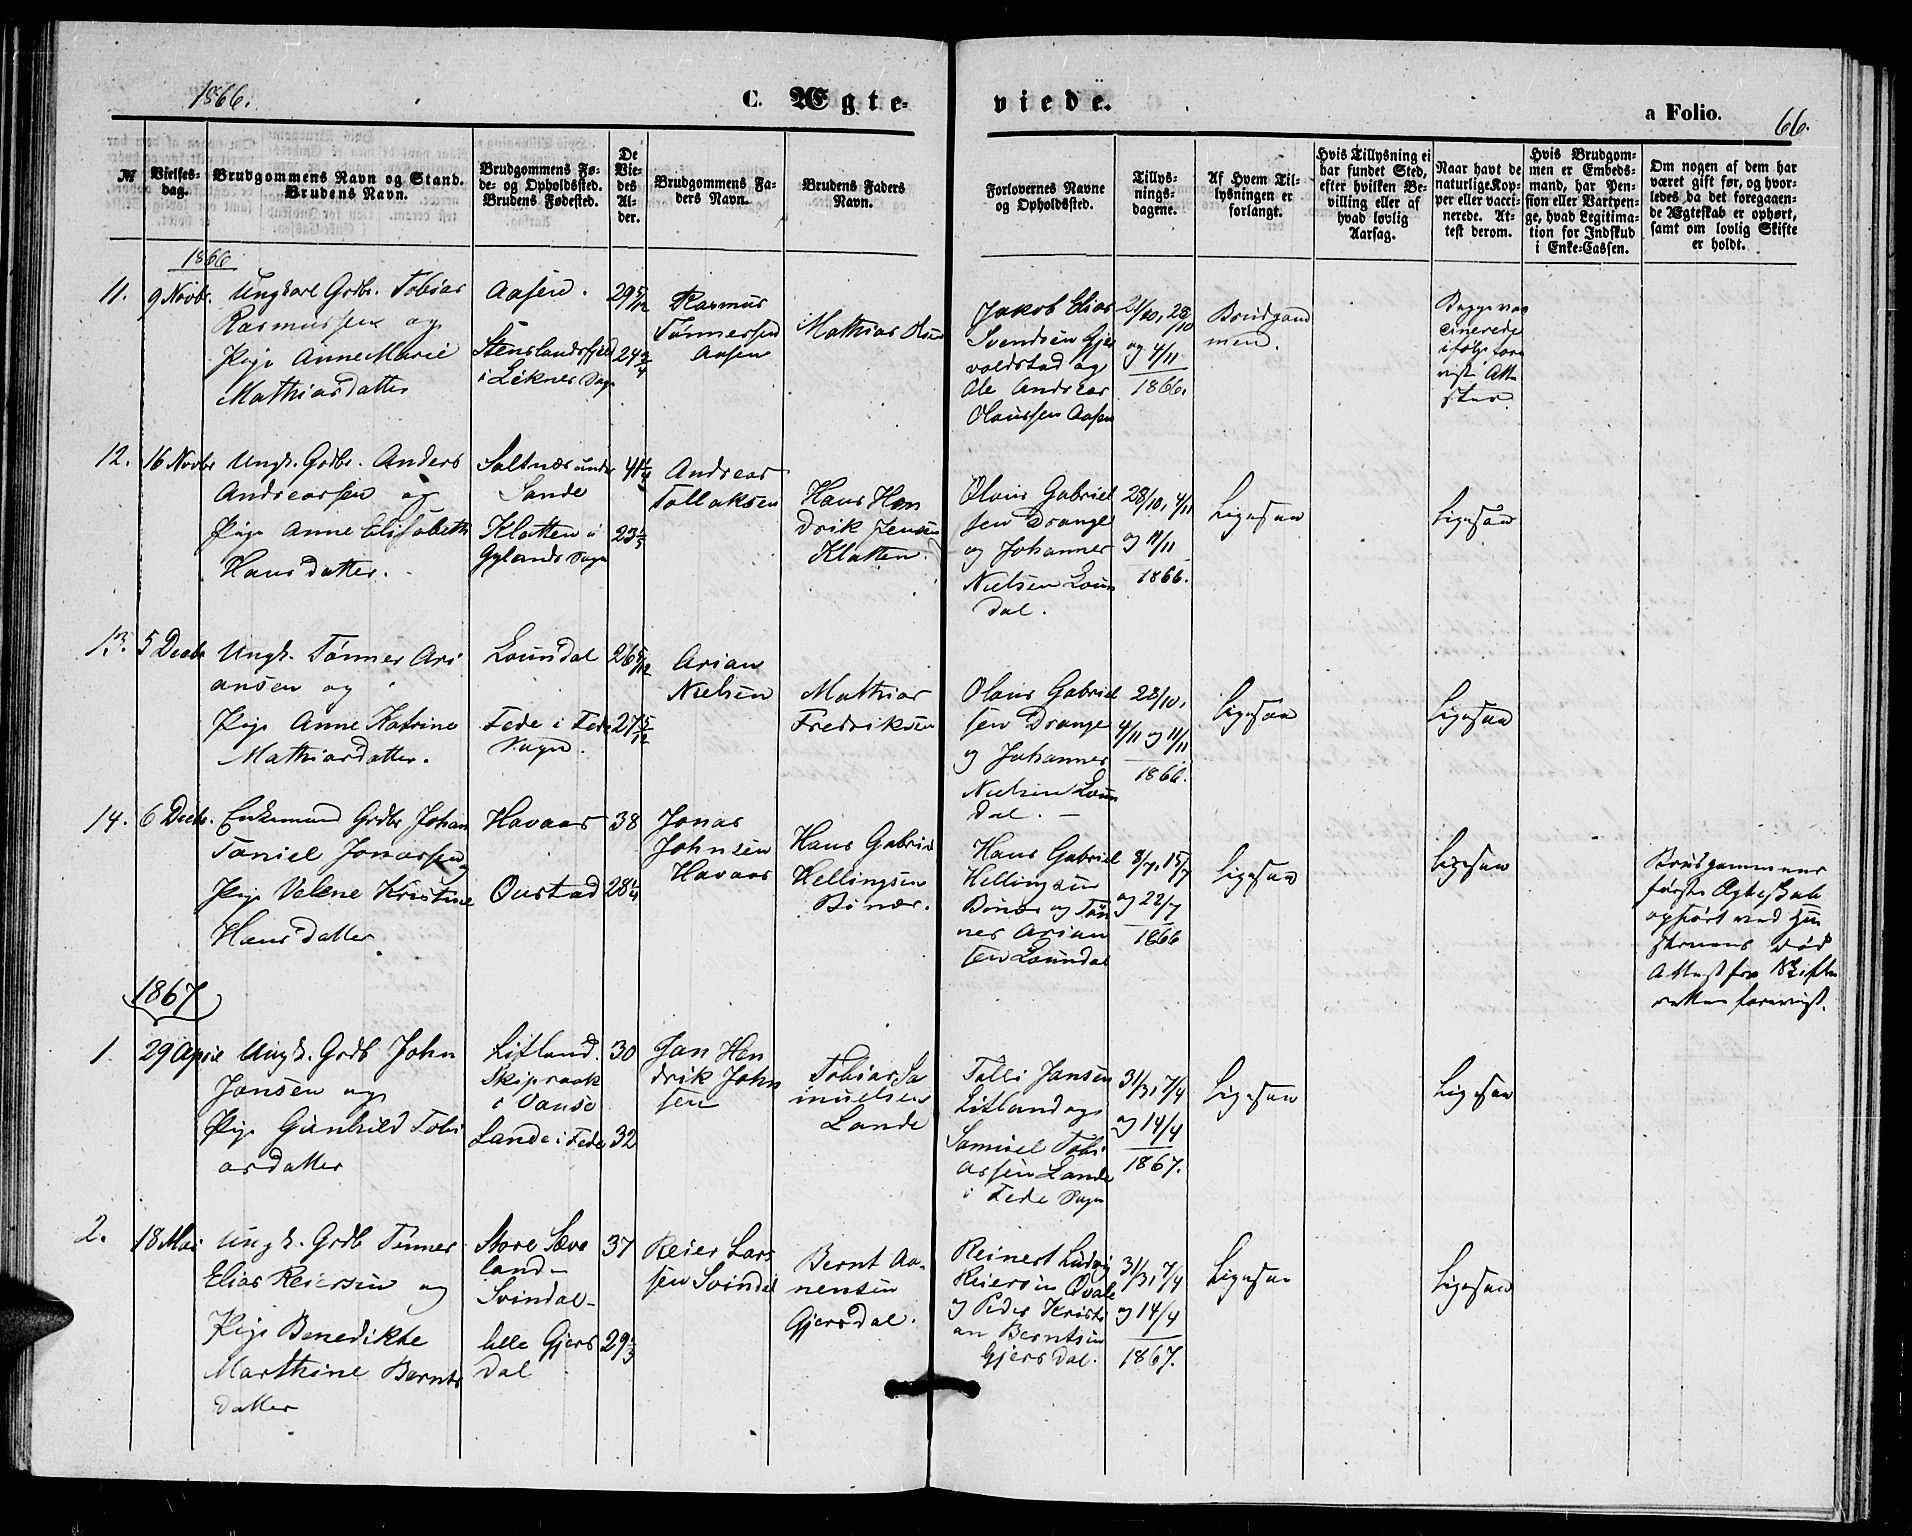 1866.
C. Ægte-
viede.
a Folio.
66.
№
Vielses-
dag.
Brudgommens Navn og Stand.
Brudens Navn.
Brudgommens Fø-
de- og Opholdssted.
Brudens Fødested.
De
Vie-
des
Al-
der.
Brudgommens Fa-
ders Navn.
Brudens Faders
Navn.
Forlovernes Navne
og Opholdssted.
Tillys-
nings-
dagene.
Af Hvem Til-
lysningen er
forlangt.
Hvis Tillysning ei
har fundet Sted,
efter hvilken Be-
villing eller af
hvad lovlig
Aarsag.
Naar havt de
naturlige Kop-
per eller vacci-
nerede. At-
test derom.
Hvis Brudgom-
men er Embeds-
mand, har Pen-
sion eller Vartpen-
ge, hvad Legitima-
tion for Indskud
i Enke-Cassen.
Om nogen af dem har
været gift før, og hvor-
ledes da det foregaaen-
de Ægteskab er ophørt,
samt om lovlig Skifte
er holdt.
1866
11.
9 Novbr.
Ungkarl Grdbr. Tobias
Rasmussen og
Pige Anne Marie
Mathiasdatter
Aasen.
Stenslandsfjed
i Liknes Sogn
29 5/12
24 3/4
Rasmus
Tønnessen
Aasen
Mathias Olsen
Jakob Elias
Svendsen Gjer
voldstad og
Ole Andreas
Olaussen Aasen
21/10, 28/10
og 4/11
1866.
Brudgom
men.
Begge vac
cinerede
ifølge fore
vist Atte
ster
12.
16 Novbr
Ungk. Grdbr. Anders
Andreassen og
Pige Anne Elisabeth
Hansdatter.
Saltnæs under
Sande
Klatten i
Gylands Sogn
41 1/4
23 1/3
Andreas
Tollaksen
Hans Hen
drik Jensen
Klatten.
Olaus Gabriel
sen Drange
og Johannes
Nielsen Loun
dal.
28/10, 4/11
og 11/11
1866.
Ligesaa
Ligesaa
13.
5 Decbr
Ungk. Tønnes Ari
ansen og
Pige Anne Katrine
Mathiasdatter.
Loundal
Fede i Fede
Sogn.
26 5/12
27 5/12
Arian
Nielsen
Mathias
Fredriksen
Olaus Gabriel
sen Drange
og Johannes
Nielsen Loun
dal.
28/10,
4/11 og 11/11
1866.
Ligesaa
Ligesaa
14.
6 Decbr.
Enkemand Grdbr Johan
Taniel Jonassen
Pige Velene Kristine
Hansdatter
Havaas
Oustad
38
28 1/4
Jonas
Johnsen
Havaas
Hans Gabriel
Hellingsen
Bönær.
Hans Gabriel
Hellingsen
Bönær og Tøn
nes Arian
sen Loundal
8/7, 15/7
og 22/7
1866
Ligesaa
Ligesaa
Brudgommens
første Ægteskab
ophørt ved Hu
struens Død
Attest fra Skifte
retten forevist.
1867
1.
29 April
Ungk. Grdb John
Jansen og
Pige Gunhild Tobi
asdatter
Litland.
Skipraak
i Vanse
Lande i Fede
30
32
Jan Hen
drik John
sen
Tobias Sa
muelsen
Lande
Tolli Jansen
Litland og
Samuel Tobi
assen Lande
i Fede Sogn
31/3, 7/4
og 14/4
1867.
Ligesaa
Ligesaa
2.
18 Mai
Ungk. Grdb Tønnes
Elias Reiersen og
Pige Benedikte
Marthine Bernts
datter
Store Sæve
land-
Svindal-
lille Gjers
dal
37
29 1/3
Reier Lars
sen Svindal
Bernt Aa-
nensen
Gjersdal.
Reinert Ludvig
Reiersen Qvale
og Peder Kristi
an Berntsen
Gjersdal.
31/3, 7/4
og 14/4
1867.
Ligesaa
Ligesaa